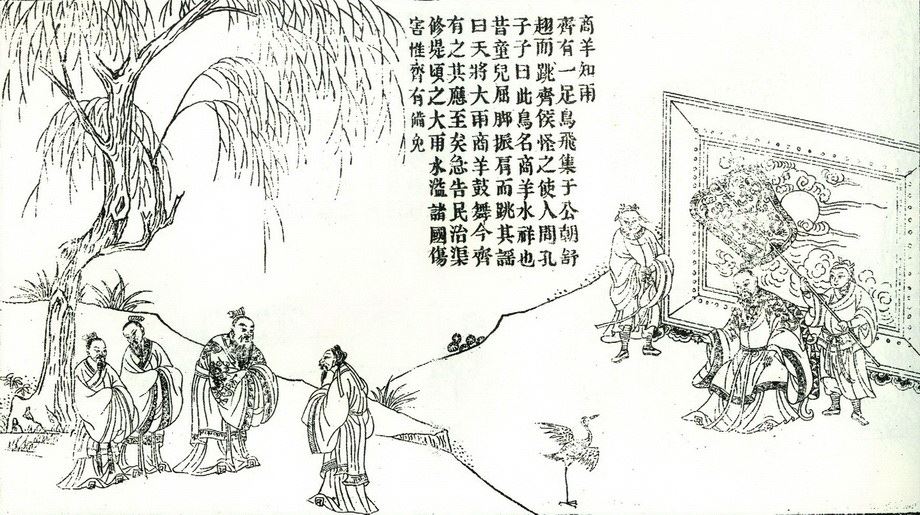 商羊知雨
齊有一足鳥飛集于公朝舒
翅而跳齊侯怪之使人問孔
子子曰此鳥名商羊水祥也
昔童兒屈脚振肩而跳其謡
曰天將大雨商羊鼓舞今齊
有之其應至矣急告民治渠
修堤頃之大雨水溢諸國傷
害惟齊有備免